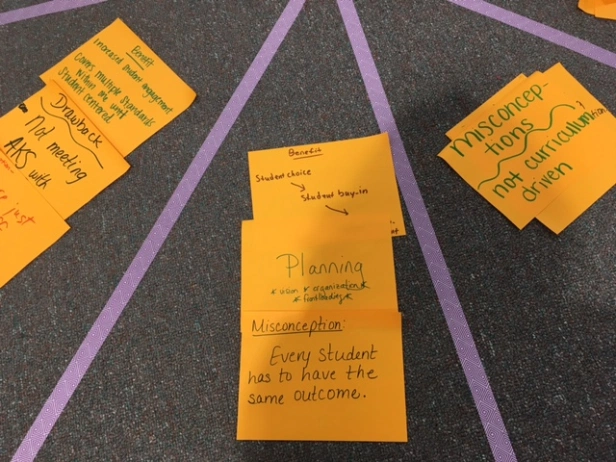 Benefit
Increased student engagement
Covers multiple standards
within one unit
Student centered
Drawback
Not meeting
AKS with
just
Benefit
Student choice
Student buy-in
Planning
* vision * organization *
* frontloading *
Misconception:
Every student
has to have the
same outcome.
misconcep-
tions
not curriculum
driven